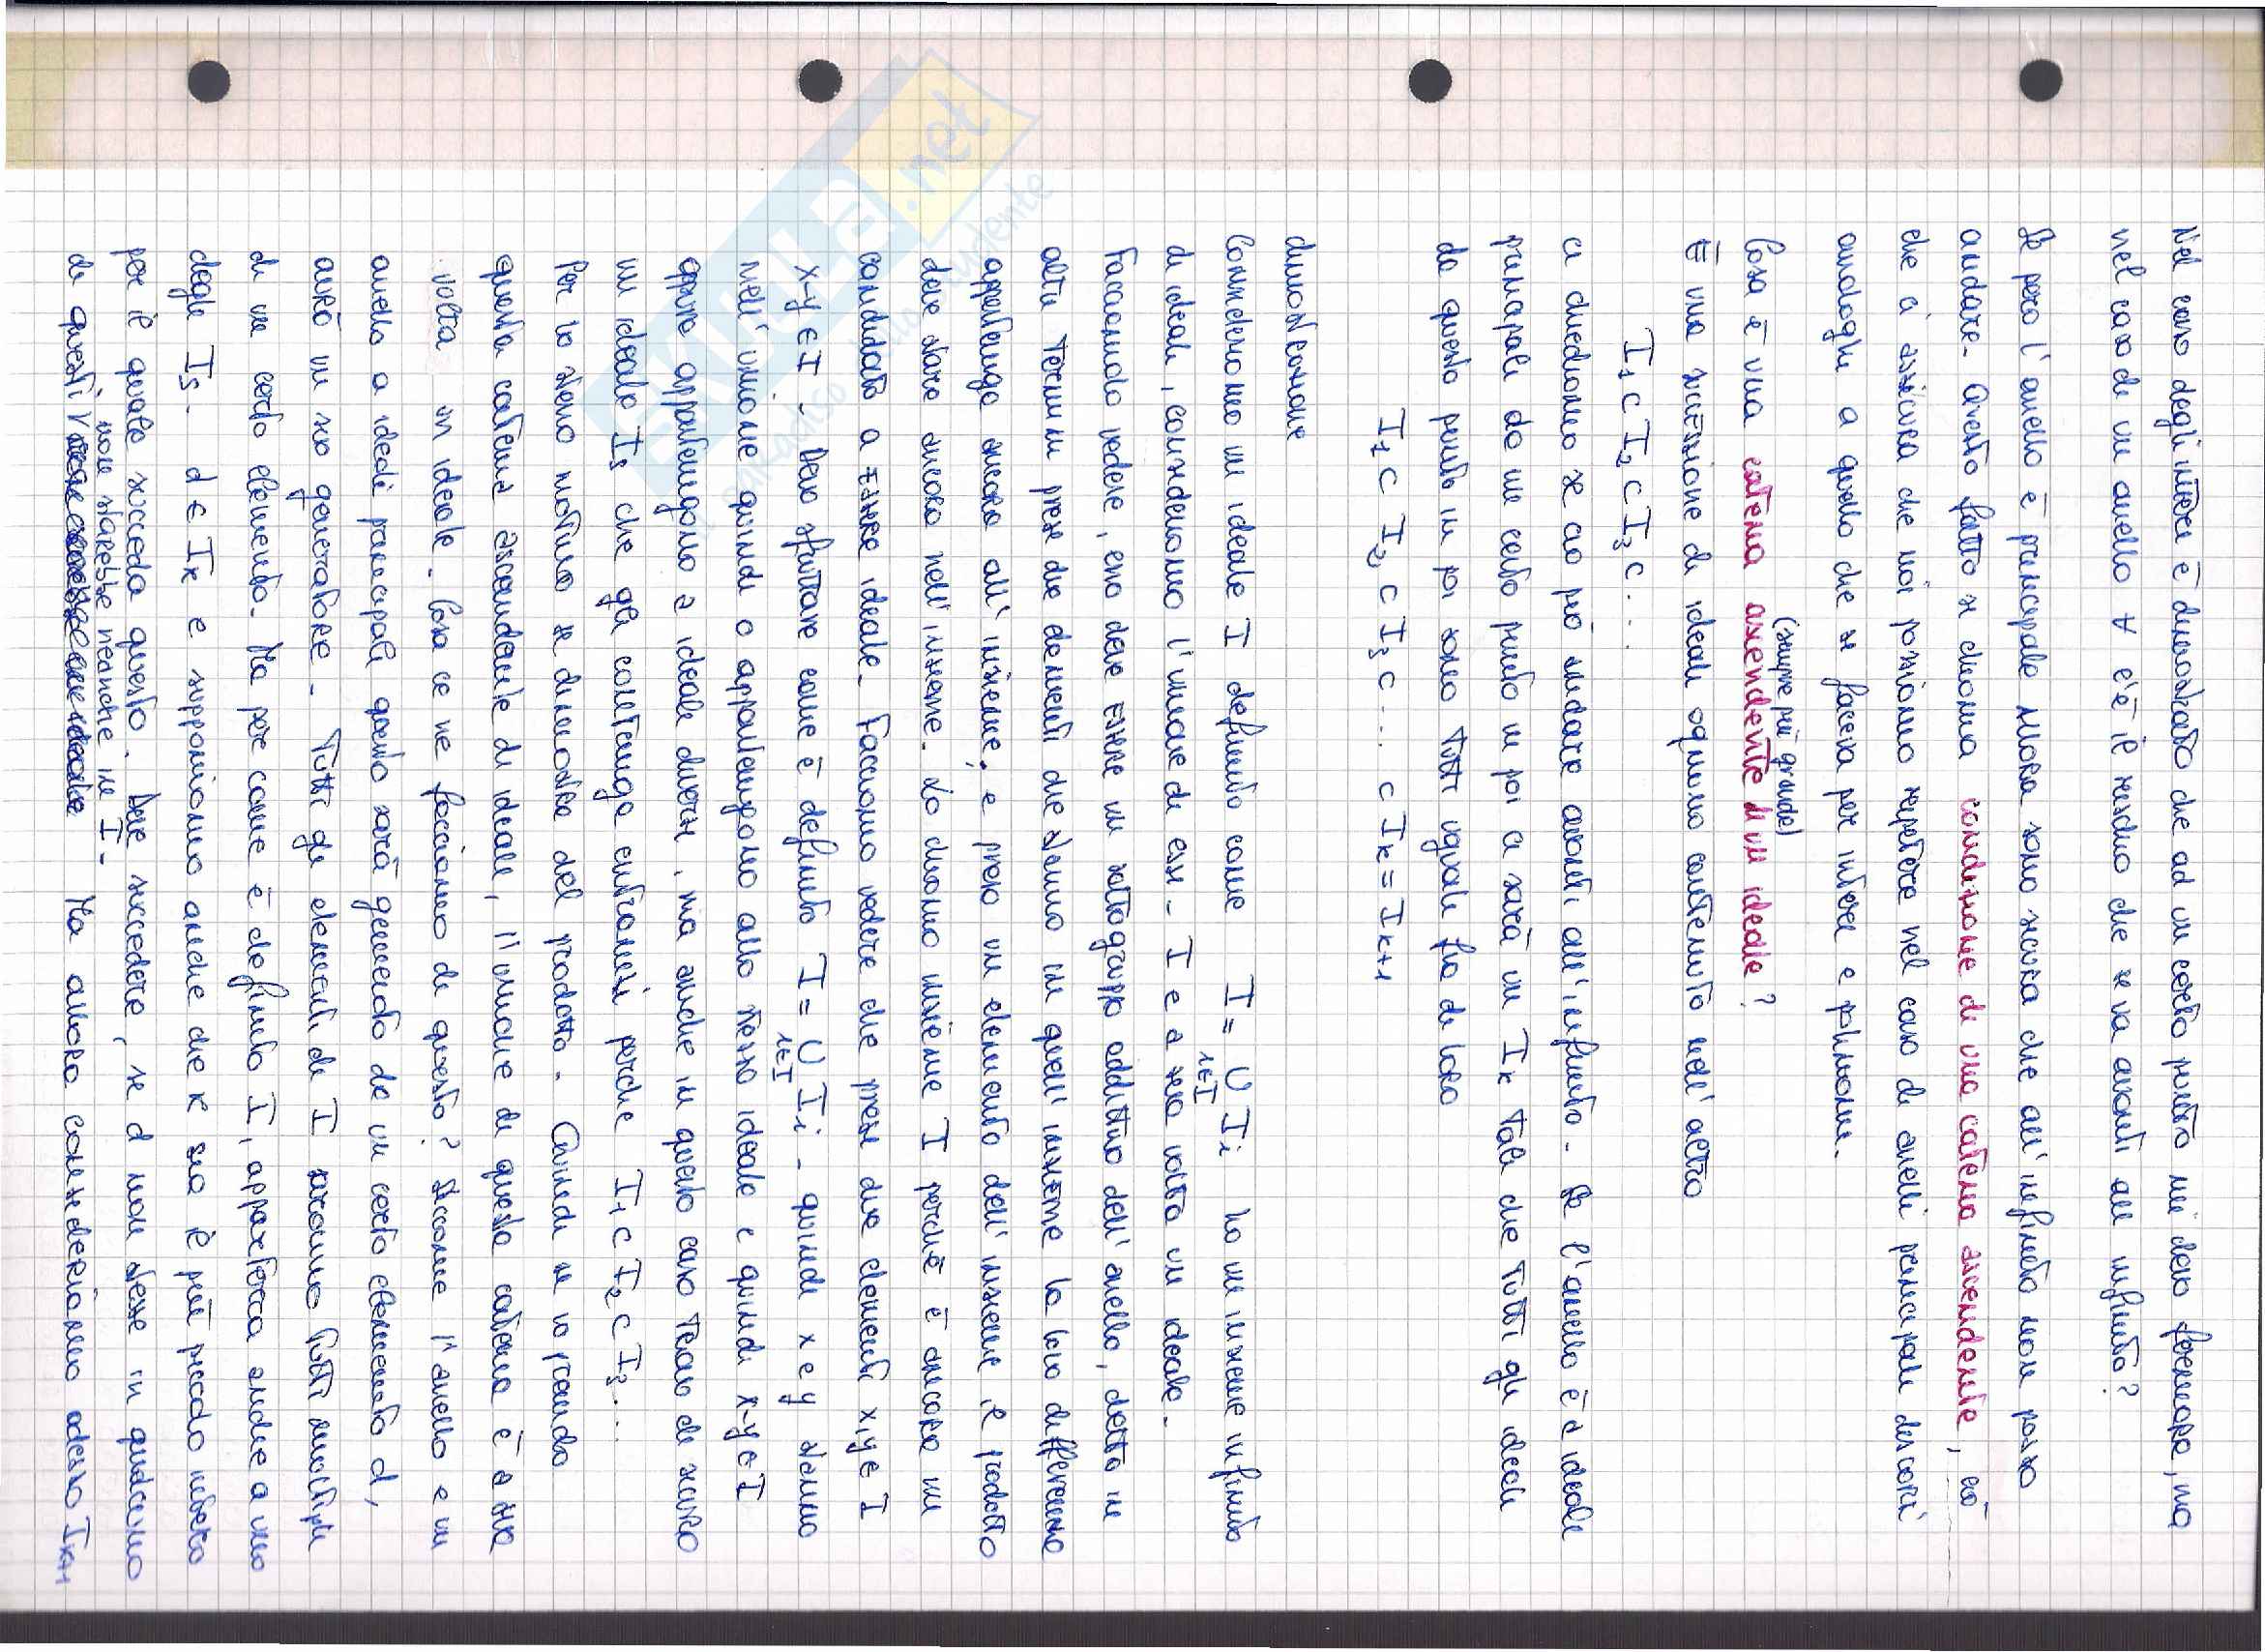 Nel caso degli interi è dimostrato che ad un certo punto mi devo fermare, ma
nel caso di un anello ∀ c'è il rischio che si va avanti all'infinito?
Se però l'anello è principale allora sono sicura che all'infinito non posso
andare. Questo fatto si chiama condizione di una catena ascendente, ciò
che ci assicura che noi possiamo ripetere nel caso di anelli principali discorsi
analoghi a quello che si faceva per interi e polinomi.
(sempre più grande)
Cosa è una catena ascendente di un ideale?
È una successione di ideali ognuno contenuto nell'altro
I₁ ⊂ I₂ ⊂ I₃ ⊂ ....
ci chiediamo se ciò può andare avanti all'infinito. Se l'anello è a ideali
principali da un certo punto in poi ci sarà un Iₖ tale che tutti gli ideali
da questo punto in poi sono tutti uguali fra di loro
I₁ ⊂ I₂ ⊂ I₃ ⊂ ... ⊂ Iₖ = Iₖ₊₁
dimostrazione
Consideriamo un ideale I definito come I = ∪ Iᵢ ho un insieme infinito
i∈I
di ideali, consideriamo l'unione di essi. I è a sua volta un ideale.
Facciamolo vedere, esso deve essere un sottogruppo additivo dell'anello, detto in
altri termini presi due elementi che stanno in quell'insieme la loro differenza
appartenga ancora all'insieme; e preso un elemento dell'insieme il prodotto
deve stare ancora nell'insieme. Lo chiamo insieme I perchè è ancora un
candidato a essere ideale. Facciamo vedere che presi due elementi x,y ∈ I
x-y ∈ I. Devo sfruttare come è definito I = ∪ Iᵢ. quindi x e y stanno
i∈I
nell'unione quindi o appartengono allo stesso ideale e quindi x-y ∈ I
oppure appartengono a ideali diversi, ma anche in questo caso ci sarà
un ideale Is che gli contenga entrambi perchè I₁ ⊂ I₂ ⊂ I₃ ...
Per lo stesso motivo si dimostra del prodotto. Quindi se io prendo
questa catena ascendente di ideali, l'unione di questa catena è a sua
volta un ideale. Cosa ce ne facciamo di questo? Siccome l'anello è un
anello a ideali principali questo sarà generato da un certo elemento d,
avrò un suo generatore. Tutti gli elementi di I saranno tutti multipli
di un certo elemento. Ma per come è definito I, apparterrà anche a uno
degli Is. d ∈ Iₖ e supponiamo anche che k sia il più piccolo intero
per il quale succeda questo. Deve succedere, se d non stesse in qualcuno
non starebbe neanche in I.
di questi Ma allora consideriamo adesso Iₖ₊₁